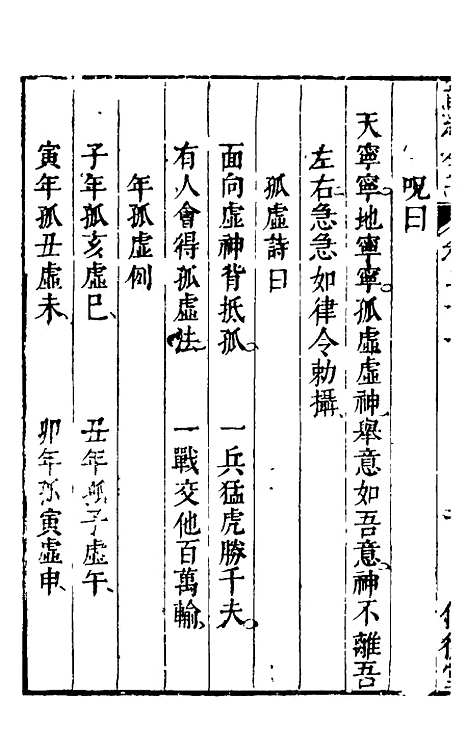 呪曰
天寧寧。地寧寧。孤虛虛神、舉意如吾意、神不離吾
左右急急如律令勅攝、
孤虛詩曰
面向虛神背抵孤。 一兵猛虎勝千夫。
有人會得孤虛法、 一戰交他百萬輸、
年孤虛例
子年孤亥虛巳、 丑年孤子虛午、
寅年孤丑虛未、 卯年孤寅虛申、